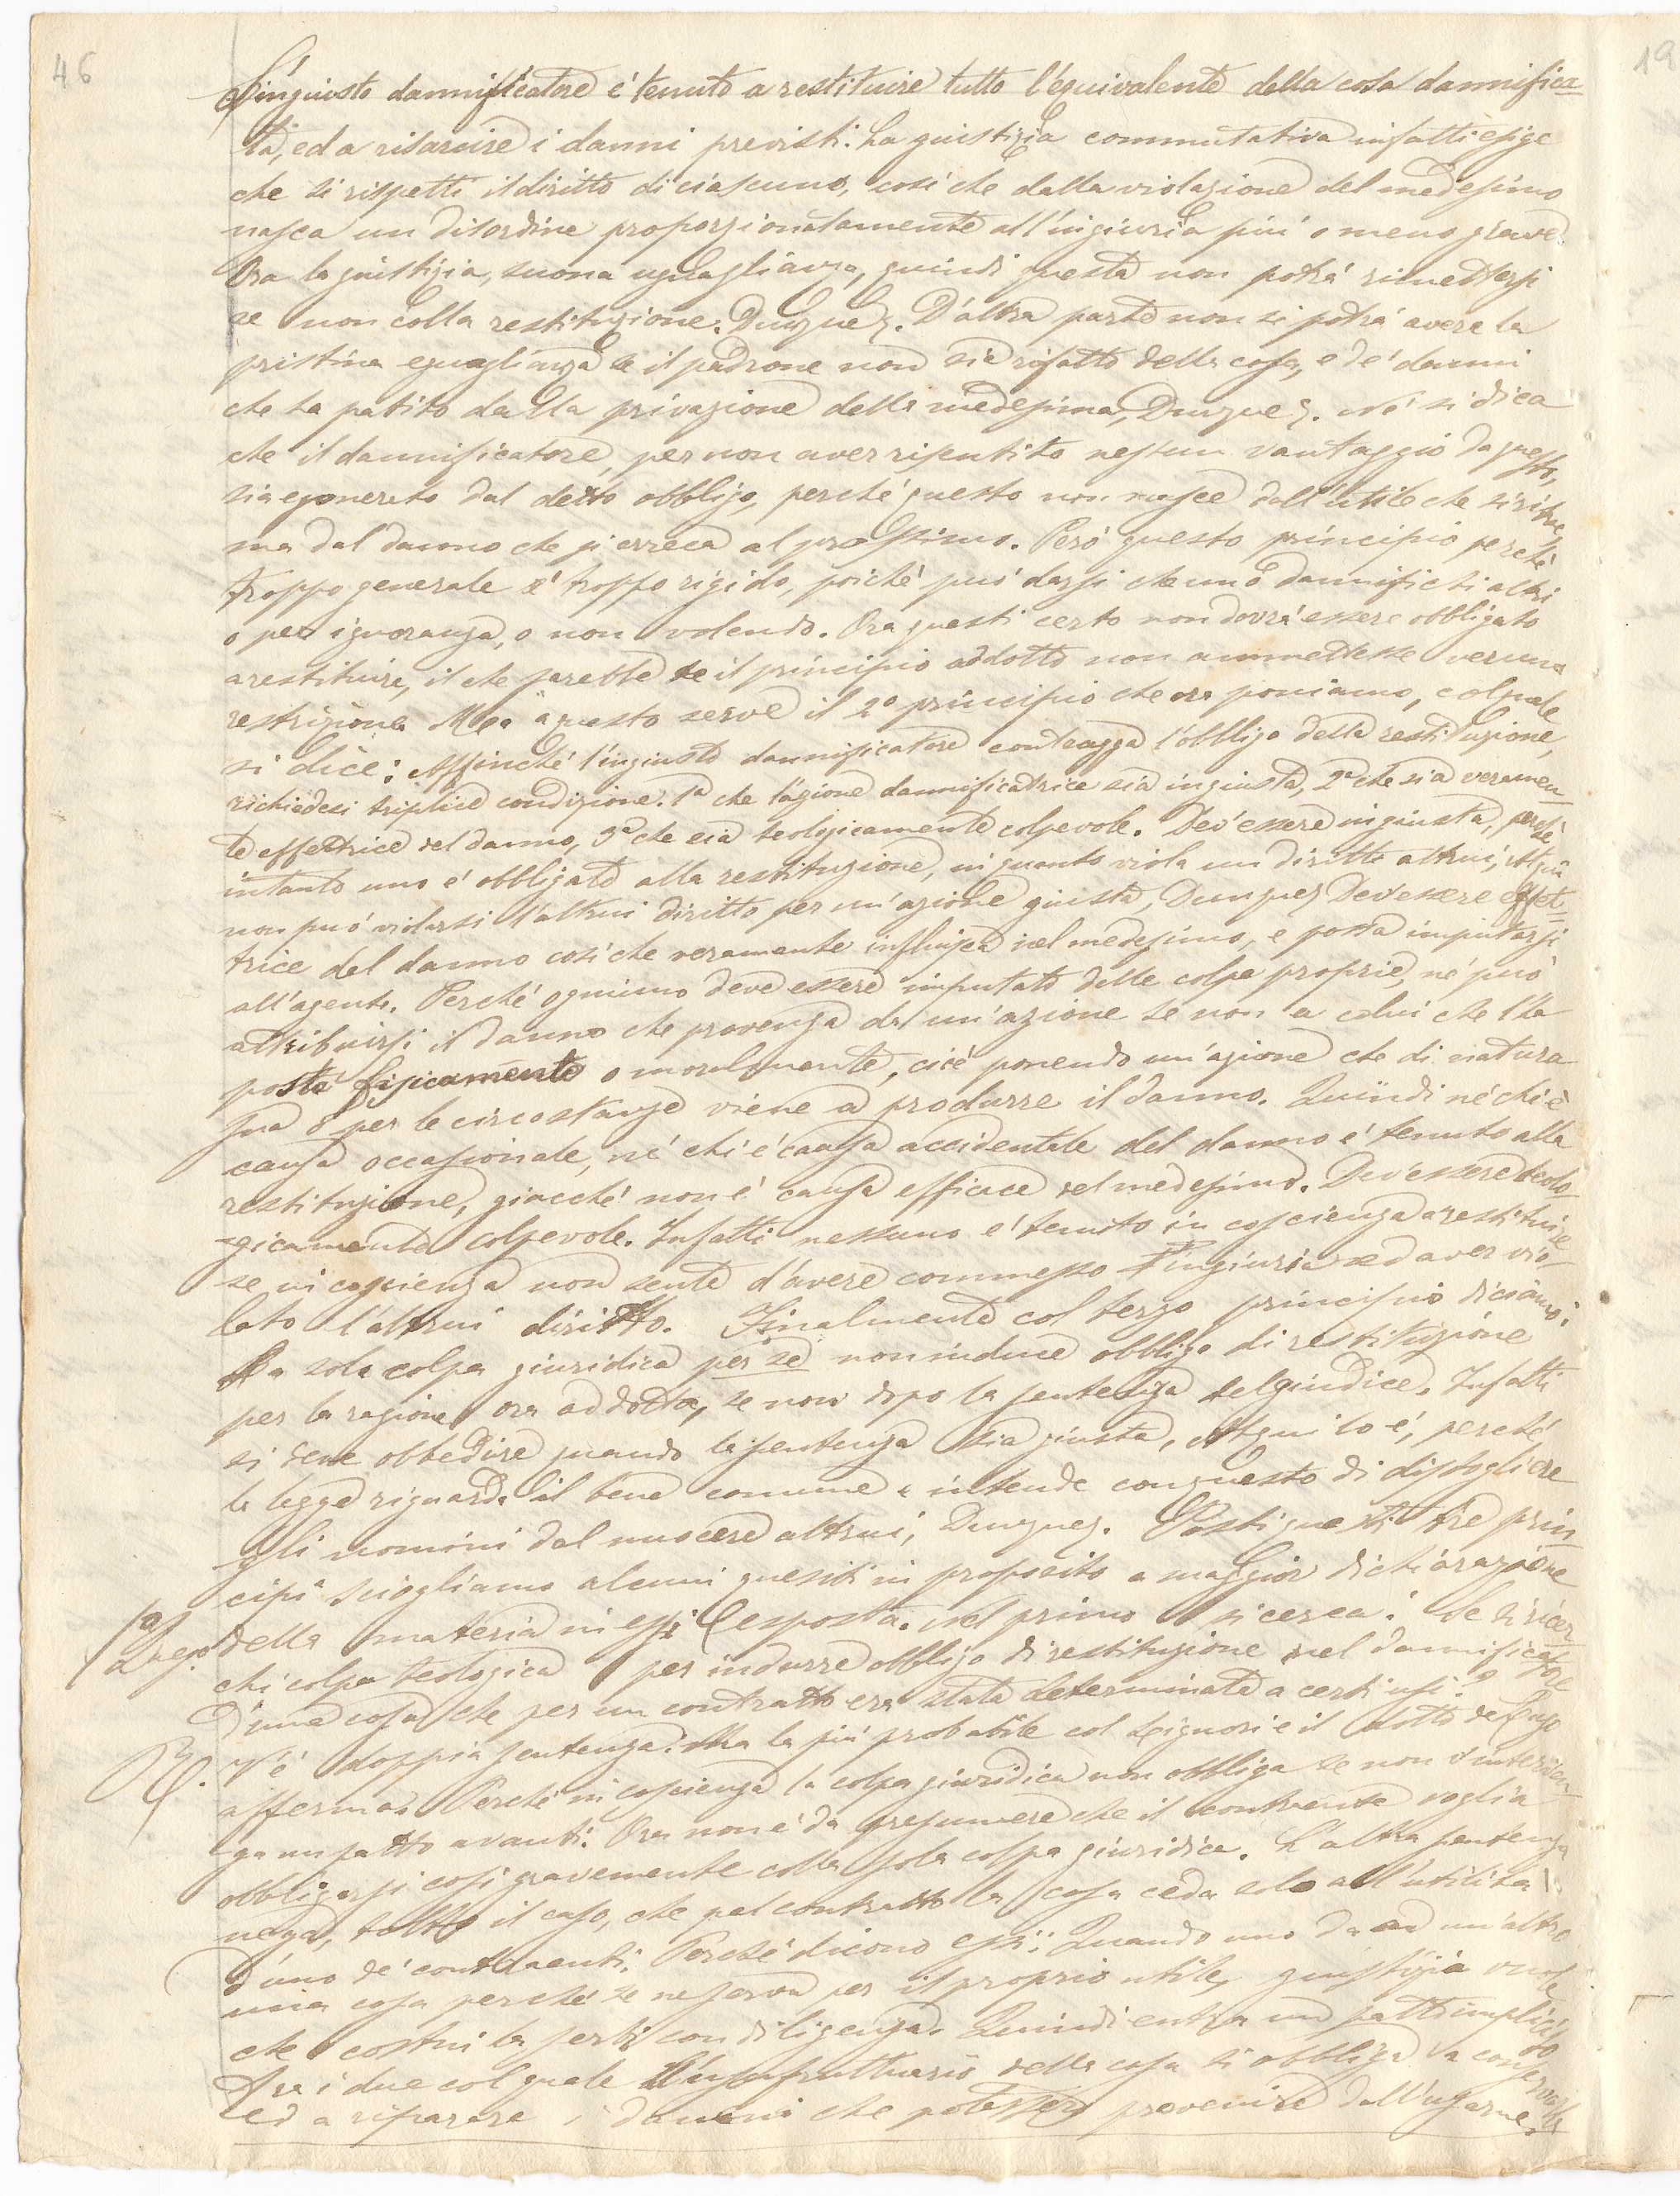 46
19
L'ingiusto dannificatore é tenuto a restituire tutto l'equivalente della cosa dannifica=
ta, ed a risarcire i danni previsti. La giustizia commutativa infatti esige
che si rispetti il diritto di ciascuno, cosí che dalla violazione del medesimo
nasca un disordine proporzionatamente all'ingiuria piú o meno grave.
Ora la giustizia, suona uguaglianza, quindi questa non potrá rimettersi
se non colla restituzione. Dunque. D'altra parte non si potrá avere la
pristina eguaglianza se il padrone non sia rifatto della cosa, e de' danni
che ha patito dalla privazione della medesima, Dunque. Né si dica
che il dannificatore, per non aver risentito nessun vantaggio da questo,
sia esonerato dal detto obbligo, perché questo non nasce dall'utile che si
ma dal danno che si arreca al prossimo. Peró questo principio perché
troppo generale é troppo rigido, poiché puó darsi che uno dannifichi altri
o per ignoranza, o non volendo. Ora questi certo non dovrá essere obbligato
a restituire, il che sarebbe se il principio addotto non ammettesse veruna
restrizione. Ma a questo serve il 2º principio che ora poniamo, col quale
si dice: Affinché l'ingiusto dannificatore contragga l'obbligo della restituzione,
richiedesi triplice condizione. 1ª che l'azione dannificatrice sia ingiusta, 2ª che sia veramen=
te effettrice del danno, 3ª che sia teologicamente colpevole. Dev'essere ingiusta, perché
intanto uno é obbligato alla restituzione, in quanto viola un diritto altrui, Atqui
non puó violarsi l'altrui diritto per un'azione giusta, Dunque Dev'essere effet=
trice del danno cosí che veramente influisca nel medesimo, e possa imputarsi
all'agente. Perché ognuno deve essere imputato delle colpe proprie, né puó
attribuirsi il danno che provenga da un'azione se non a colui che l'ha
posta fisicamente o moralmente, cioé ponendo un'azione che di natura
sua o per le circostanze viene a produrre il danno. Quindi né chi é
causa occasionale, né chi é causa accidentale del danno é tenuto alla
restituzione, giacché non é causa efficace del medesimo. Dev'essere teolo=
gicamente colpevole. Infatti nessuno é tenuto in coscienza a restituire
se in coscienza non sente d'avere commesso l'ingiuria ed aver vio=
lato l'altrui diritto. Finalmente col terzo principio diciamo:
La sola colpa giuridica per se non induce obbligo di restituzione
per la ragione ora addotta, se non dopo la sentenza del giudice. Infatti
si deve obbedire quando la sentenza sia giusta, Atqui lo é, perché
la legge riguarda il bene comune e intende con questo di distogliere
gli uomini dal nuocere altrui, Dunque. Posti questi tre prin=
cipi sciogliamo alcuni quesiti in proposito a maggior dichiarazione
1º Ques. della materia in essi esposta. Nel primo si cerca: Se si ricer=
chi colpa teologica per indurre obbligo di restituzione nel dannificatore
d'una cosa che per un contratto era stata determinata a certi usi?
R. V'é doppia sentenza. Ma la piú probabile col Liguori e il dotto de Lugo
afferma. Perché in coscienza la colpa giuridica non obbliga se non v'interven=
ga un patto avanti. Ora non é da presumere che il contraente voglia
obbligarsi cosí gravemente colla sola colpa giuridica. L'altra sentenza
nega, tolto il caso, che pel contratto la cosa ceda solo all'utilitá
d'uno de' contraenti. Perché dicono essi: Quando uno da ad un'altro
una cosa perché se ne serva per il proprio utile, giustizia vuole
che costui la serbi con diligenza. Quindi entra un patto implicito
fra i due col quale l'usufruttuario della cosa si obbliga a conservarla
ed a riparare i danni che potessero provenire dall'usarne.